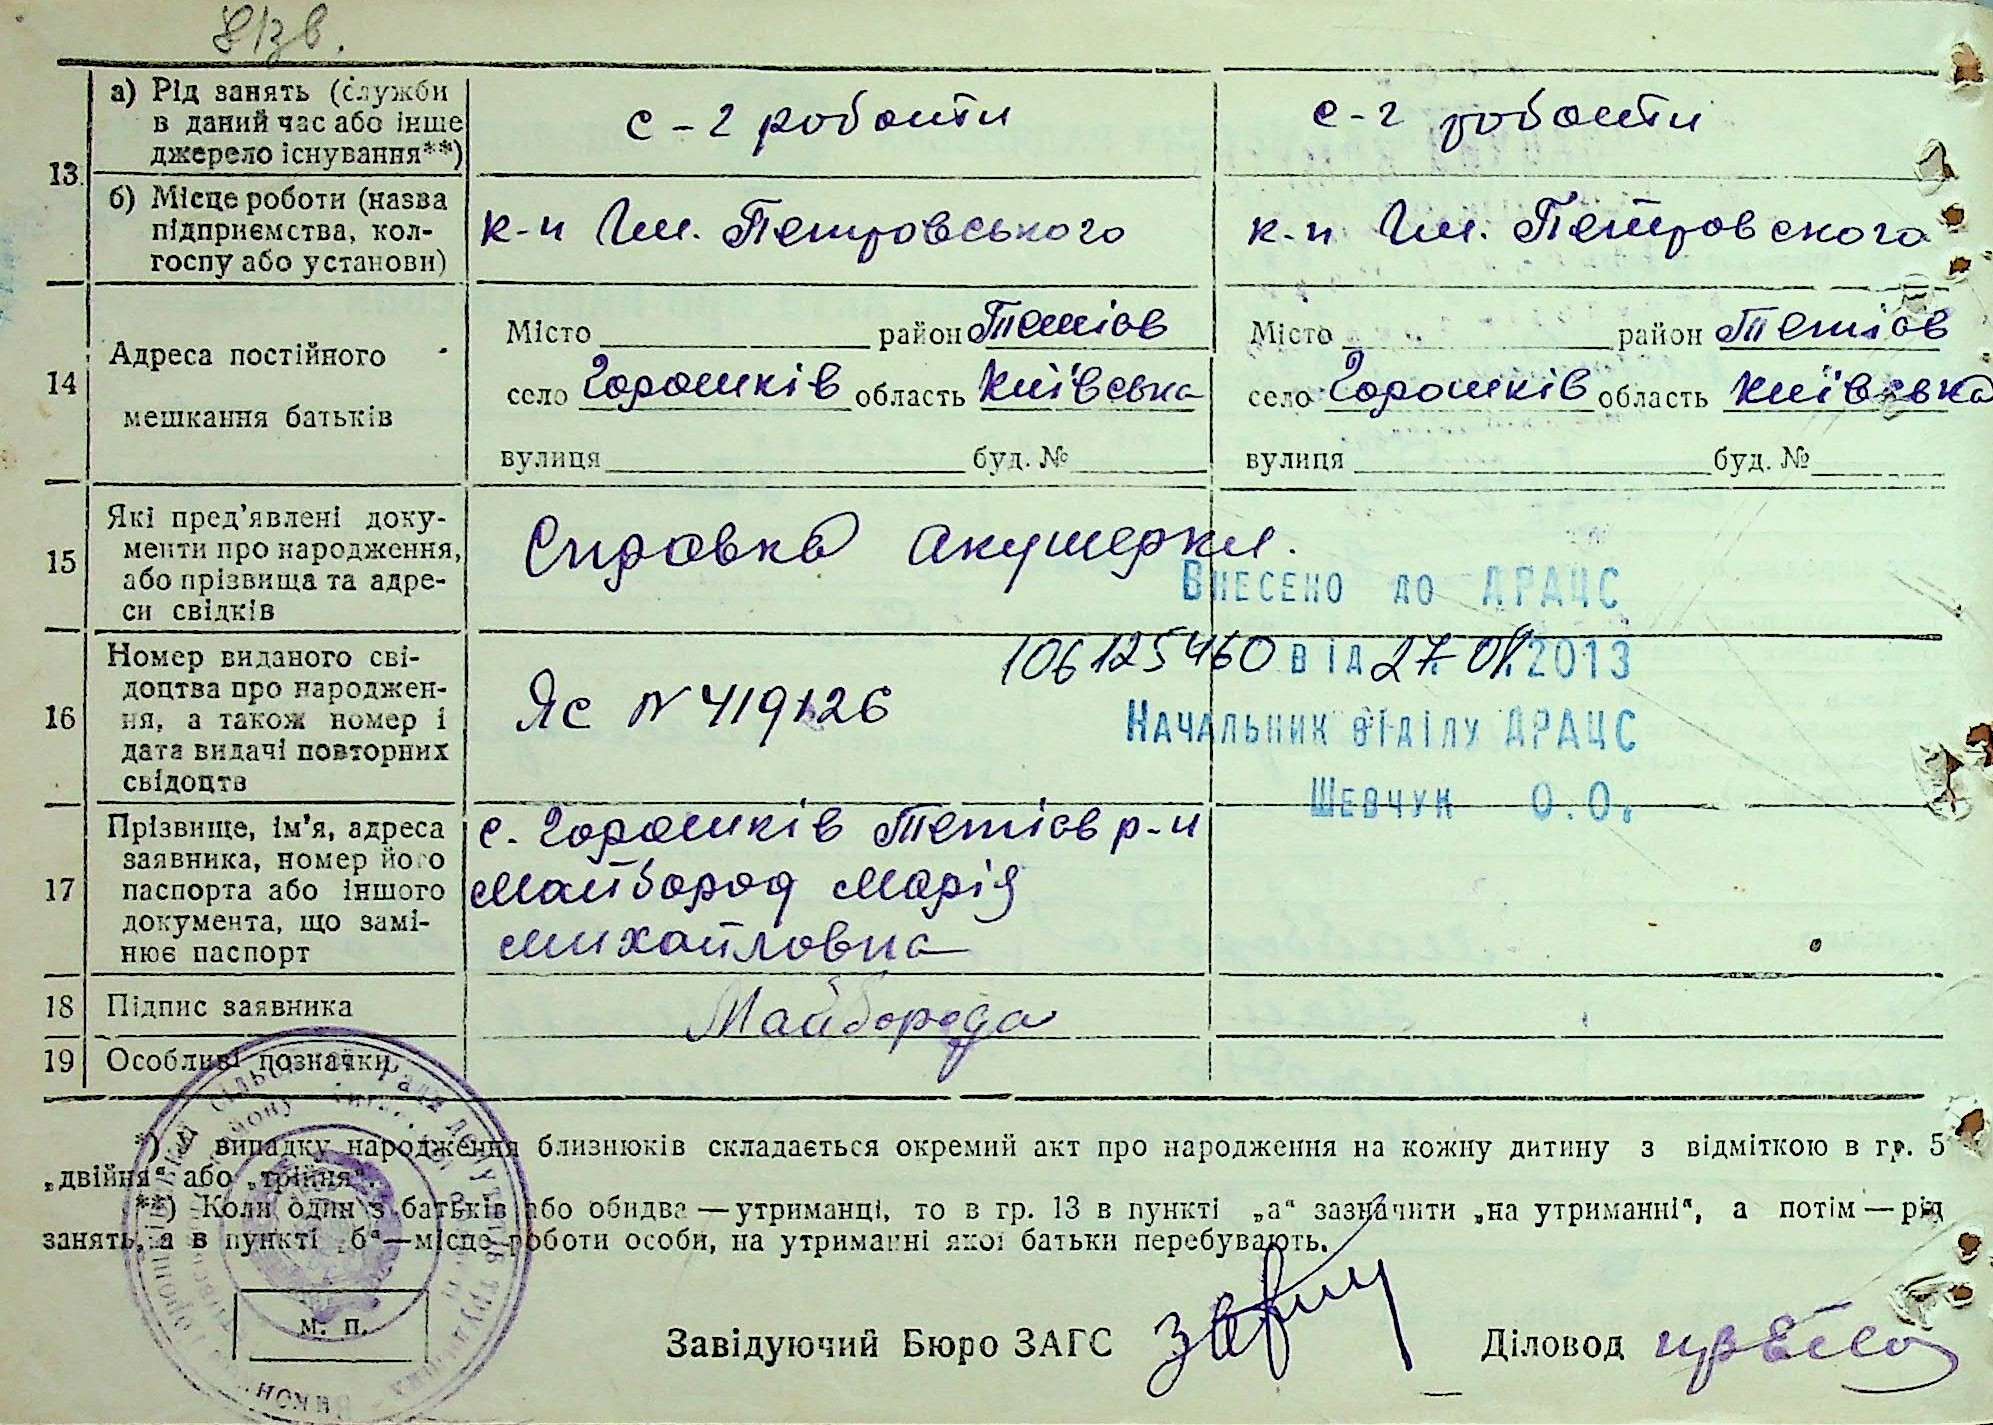 13
а) Рід занять (служби
в даний час або інше
джерело існування**)
с-г роботи
с-г роботи
б) Місце роботи (назва
підприємства, кол-
госпу або установи)
к-п Ім. Петровського
к-п Ім. Петровского
14
Адреса постійного
мешкання батьків
Місто район Тетіїв
село Горошків область Київська
вулиця буд. №
Місто район Тетіїв
село Горошків область Київська
вулиця буд. №
15
Які пред'явлені доку-
менти про народження,
або прізвища та адре-
си свідків
Справка акушерки.
Внесено до ДРАЦС
106125460 від 27.08.2013
Начальник відділу ДРАЦС
Шевчук О.О.
16
Номер виданого сві-
доцтва про народжен-
ня, а також номер і
дата видачі повторних
свідоцтв
Яс № 419126
17
Прізвище, ім'я, адреса
заявника, номер його
паспорта або іншого
документа, що замі-
нює паспорт
с. Горошків Тетіїв р-н
Майборода Марія
Михайловна
18
Підпис заявника
Майборода
19
Особливі позначки
*) випадку народження близнюків складається окремий акт про народження на кожну дитину з відміткою в гр. 5
„двійня" або „трійня".
**) Коли один з батьків або обидва — утриманці, то в гр. 13 в пункті „а" зазначити „на утриманні", а потім — рід
занять, а в пункті „б" — місце роботи особи, на утриманні якої батьки перебувають.
м. п.
Завідуючий Бюро ЗАГС
Діловод